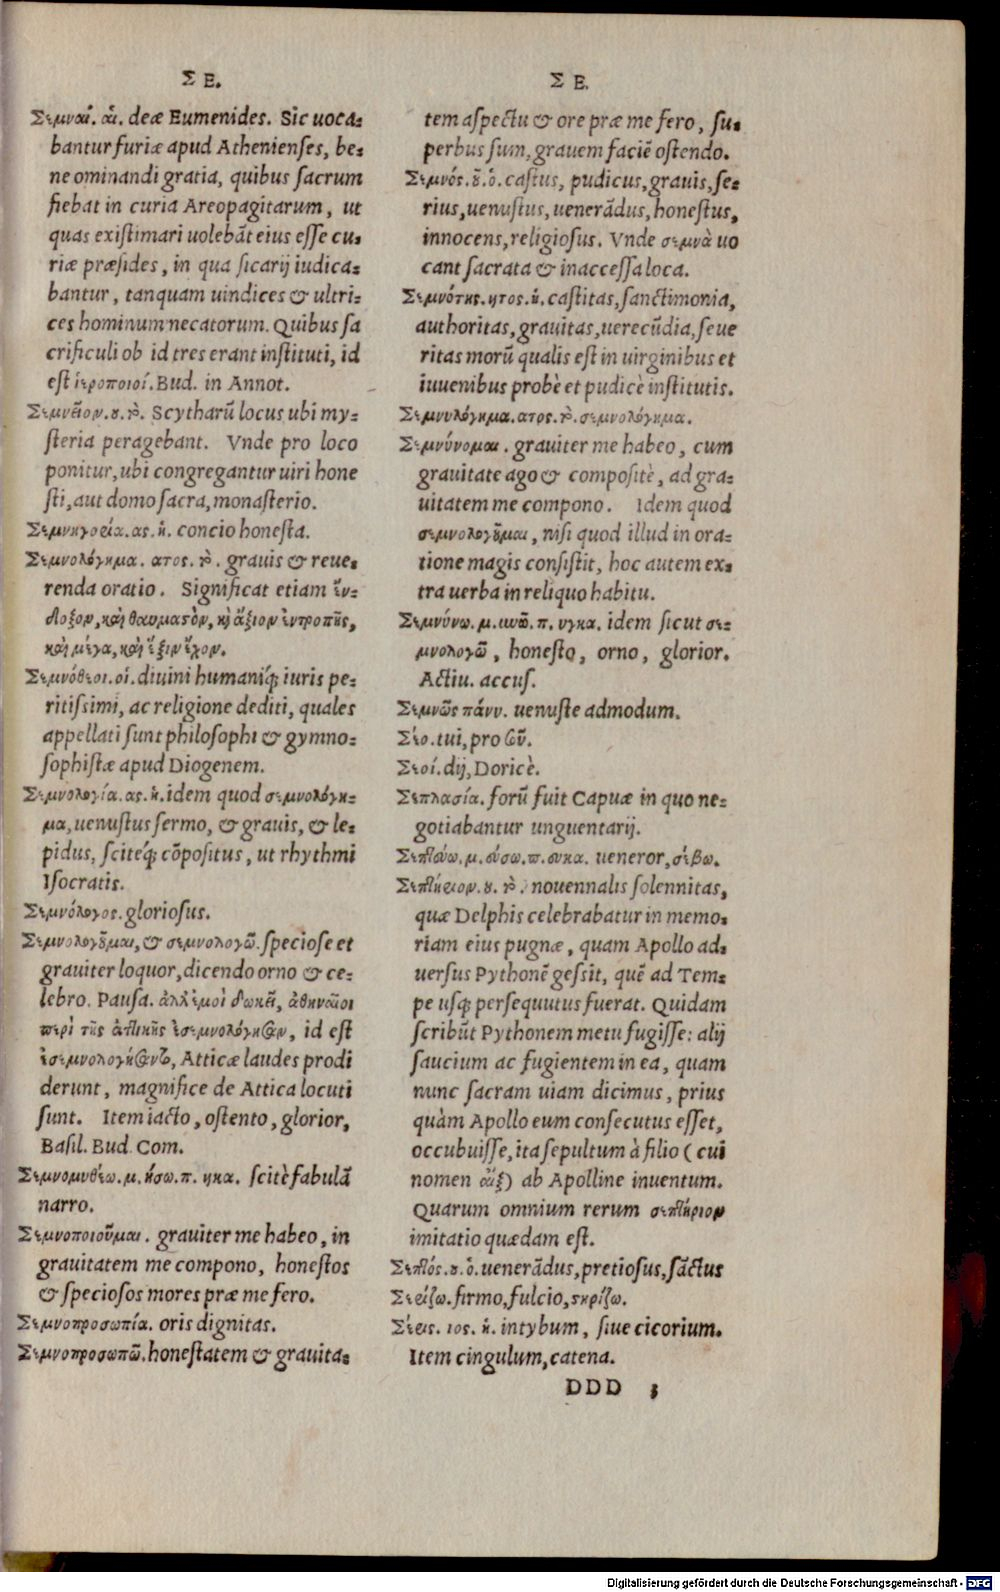 Σ Ε.
Σεμναὶ. αἱ. deæ Eumenides. Sic uoca-
bantur furiæ apud Athenienses, be-
ne ominandi gratia, quibus sacrum
fiebat in curia Areopagitarum, ut
quas existimari uolebāt eius esse cu-
riæ præsides, in qua sicarij iudica-
bantur, tanquam uindices & ultri-
ces hominum necatorum. Quibus sa
crificuli ob id tres erant instituti, id
est ἱεροποιοί. Bud. in Annot.
Σεμνεῖον. ου. τὸ. Scytharū locus ubi my-
steria peragebant. Vnde pro loco
ponitur, ubi congregantur uiri hone
sti, aut domo sacra, monasterio.
Σεμνηγορία. ας. ἡ. concio honesta.
Σεμνολόγημα. ατος. τὸ. grauis & reue-
renda oratio. Significat etiam ἔν-
δοξον, καὶ θαυμαστὸν, καὶ ἄξιον ἐντροπῆς,
καὶ μέγα, καὶ ἕξιν ἔχον.
Σεμνόθεοι. οἱ. diuini humaniq́; iuris pe-
ritissimi, ac religione dediti, quales
appellati sunt philosophi & gymno-
sophistæ apud Diogenem.
Σεμνολογία. ας. ἡ. idem quod σεμνολόγη-
μα, uenustus sermo, & grauis, & le-
pidus, sciteq́; cōpositus, ut rhythmi
Isocratis.
Σεμνόλογος. gloriosus.
Σεμνολογοῦμαι, & σεμνολογῶ. speciose et
grauiter loquor, dicendo orno & ce-
lebro. Pausa. ἀλλ' ἐμοὶ δοκεῖ, ἀθηναῖοι
περὶ τῆς ἀττικῆς ἐσεμνολόγησαν, id est
ἐσεμνολογήσαντο, Atticæ laudes prodi
derunt, magnifice de Attica locuti
sunt. Item iacto, ostento, glorior,
Basil. Bud. Com.
Σεμνομυθέω. μ. ήσω. π. ηκα. scitè fabulā
narro.
Σεμνοποιοῦμαι. grauiter me habeo, in
grauitatem me compono, honestos
& speciosos mores præ me fero.
Σεμνοπροσωπία. oris dignitas.
Σεμνοπροσωπῶ. honestatem & grauita-
Σ Ε.
tem aspectu & ore præ me fero, su-
perbus sum, grauem faciē ostendo.
Σεμνός. οῦ. ὁ. castus, pudicus, grauis, se-
rius, uenustus, uenerādus, honestus,
innocens, religiosus. Vnde σεμνὰ uo
cant sacrata & inaccessa loca.
Σεμνότης. ητος. ἡ. castitas, sanctimonia,
authoritas, grauitas, uerecūdia, seue
ritas morū qualis est in uirginibus et
iuuenibus probè et pudicè institutis.
Σεμνυλόγημα. ατος. τὸ. σεμνολόγημα.
Σεμνύνομαι. grauiter me habeo, cum
grauitate ago & compositè, ad gra-
uitatem me compono. Idem quod
σεμνολογοῦμαι, nisi quod illud in ora-
tione magis consistit, hoc autem ex-
tra uerba in reliquo habitu.
Σεμνύνω. μ. υνῶ. π. υγκα. idem sicut σε-
μνολογῶ, honesto, orno, glorior.
Actiu. accus.
Σεμνῶς πάνυ. uenuste admodum.
Σέο. tui, pro σοῦ.
Σεοί. dij, Doricè.
Σεπλασία. forū fuit Capuæ in quo ne-
gotiabantur unguentarij.
Σεπτεύω. μ. εύσω. π. ευκα. ueneror, σέβω.
Σεπτήριον. ου. τὸ. nouennalis solennitas,
quæ Delphis celebrabatur in memo-
riam eius pugnæ, quam Apollo ad-
uersus Pythonē gessit, quē ad Tem-
pe usq; persequutus fuerat. Quidam
scribūt Pythonem metu fugisse: alij
saucium ac fugientem in ea, quam
nunc sacram uiam dicimus, prius
quàm Apollo eum consecutus esset,
occubuisse, ita sepultum à filio ( cui
nomen αἲξ) ab Apolline inuentum.
Quarum omnium rerum σεπτήριον
imitatio quædam est.
Σεπτός. οῦ. ὁ. uenerādus, pretiosus, sāctus
Σερίζω. firmo, fulcio, στηρίζω.
Σέρις. ιος. ἡ. intybum, siue cicorium.
Item cingulum, catena.
DDD 3
Digitalisierung gefördert durch die Deutsche Forschungsgemeinschaft - DFG